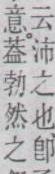 云沛之也卽
意蓋勃然之